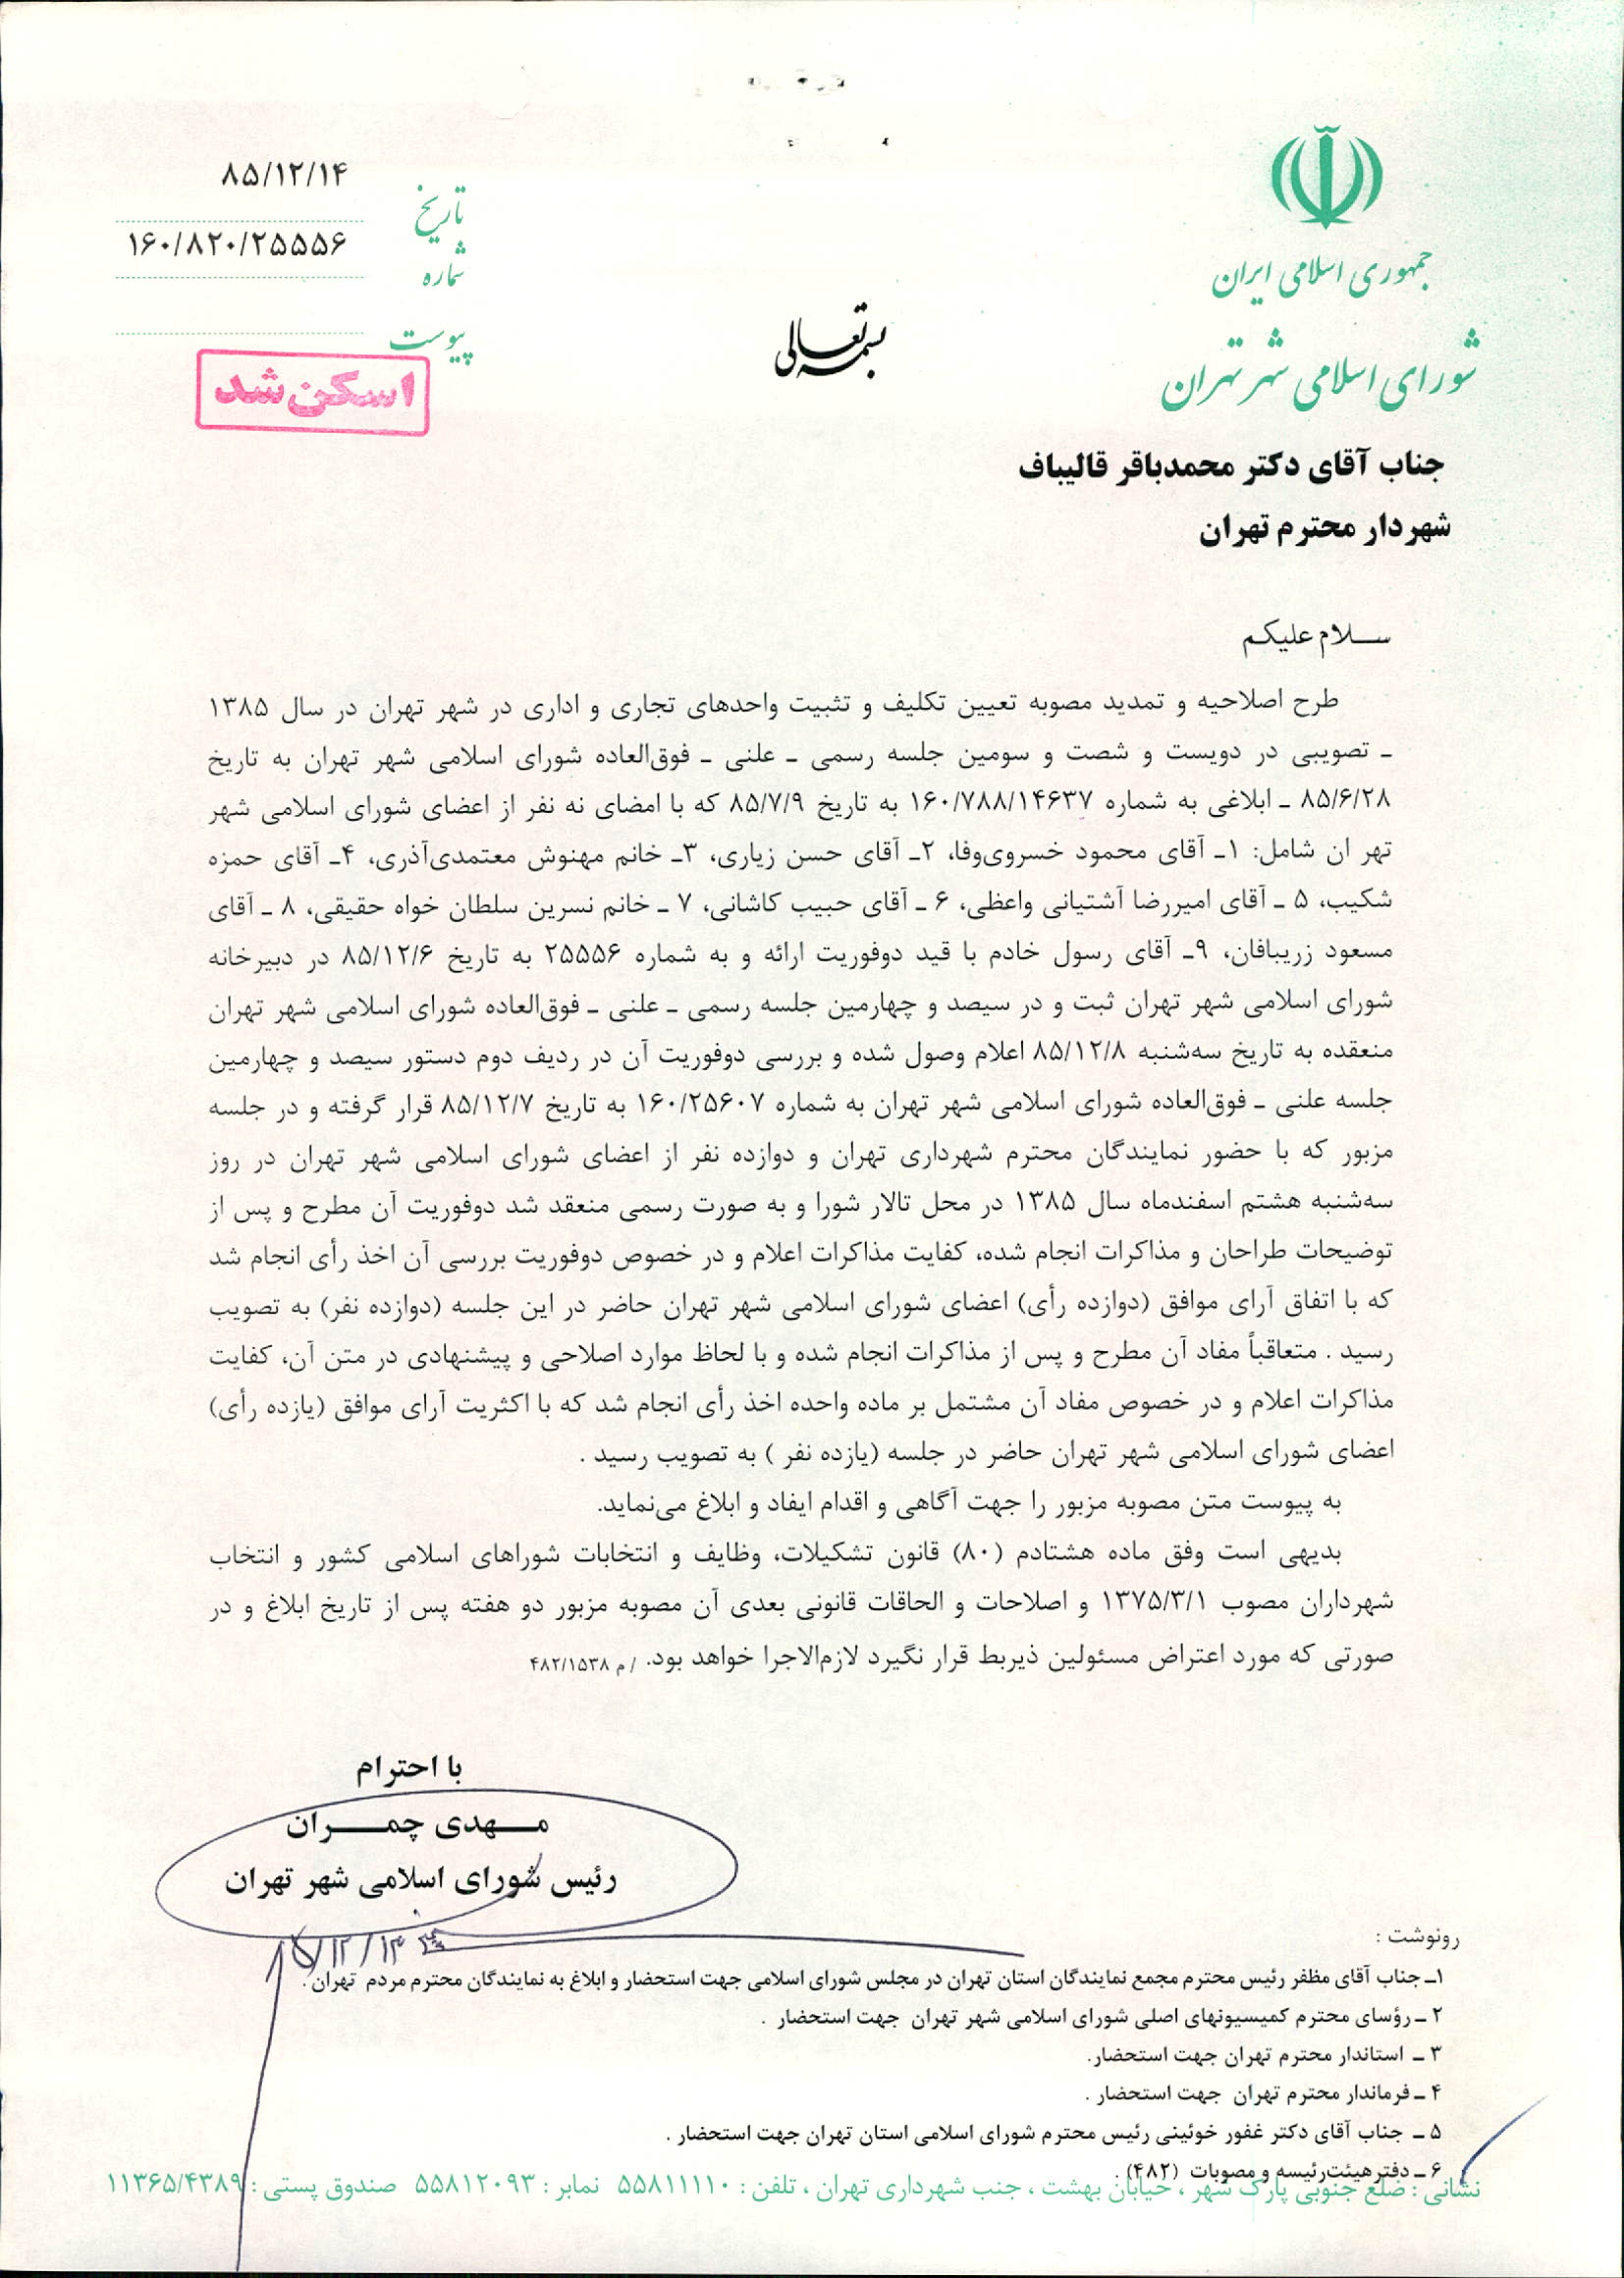 جمهوری اسلامی ایران
شورای اسلامی شهر تهران
بسمه تعالی
تاریخ ۸۵/۱۲/۱۴
شماره ۱۶۰/۸۲۰/۲۵۵۵۶
پیوست
اسکن شد
جناب آقای دکتر محمدباقر قالیباف
شهردار محترم تهران
سلام علیکم
طرح اصلاحیه و تمدید مصوبه تعیین تکلیف و تثبیت واحدهای تجاری و اداری در شهر تهران در سال ۱۳۸۵
ـ تصویبی در دویست و شصت و سومین جلسه رسمی ـ علنی ـ فوق‌العاده شورای اسلامی شهر تهران به تاریخ
۸۵/۶/۲۸ ـ ابلاغی به شماره ۱۶۰/۷۸۸/۱۴۶۳۷ به تاریخ ۸۵/۷/۹ که با امضای نه نفر از اعضای شورای اسلامی شهر
تهر ان شامل: ۱ـ آقای محمود خسروی‌وفا، ۲ـ آقای حسن زیاری، ۳ـ خانم مهنوش معتمدی‌آذری، ۴ـ آقای حمزه
شکیب، ۵ ـ آقای امیررضا آشتیانی واعظی، ۶ ـ آقای حبیب کاشانی، ۷ ـ خانم نسرین سلطان خواه حقیقی، ۸ ـ آقای
مسعود زریبافان، ۹ـ آقای رسول خادم با قید دوفوریت ارائه و به شماره ۲۵۵۵۶ به تاریخ ۸۵/۱۲/۶ در دبیرخانه
شورای اسلامی شهر تهران ثبت و در سیصد و چهارمین جلسه رسمی ـ علنی ـ فوق‌العاده شورای اسلامی شهر تهران
منعقده به تاریخ سه‌شنبه ۸۵/۱۲/۸ اعلام وصول شده و بررسی دوفوریت آن در ردیف دوم دستور سیصد و چهارمین
جلسه علنی ـ فوق‌العاده شورای اسلامی شهر تهران به شماره ۱۶۰/۲۵۶۰۷ به تاریخ ۸۵/۱۲/۷ قرار گرفته و در جلسه
مزبور که با حضور نمایندگان محترم شهرداری تهران و دوازده نفر از اعضای شورای اسلامی شهر تهران در روز
سه‌شنبه هشتم اسفندماه سال ۱۳۸۵ در محل تالار شورا و به صورت رسمی منعقد شد دوفوریت آن مطرح و پس از
توضیحات طراحان و مذاکرات انجام شده، کفایت مذاکرات اعلام و در خصوص دوفوریت بررسی آن اخذ رأی انجام شد
که با اتفاق آرای موافق (دوازده رأی) اعضای شورای اسلامی شهر تهران حاضر در این جلسه (دوازده نفر) به تصویب
رسید . متعاقباً مفاد آن مطرح و پس از مذاکرات انجام شده و با لحاظ موارد اصلاحی و پیشنهادی در متن آن، کفایت
مذاکرات اعلام و در خصوص مفاد آن مشتمل بر ماده واحده اخذ رأی انجام شد که با اکثریت آرای موافق (یازده رأی)
اعضای شورای اسلامی شهر تهران حاضر در جلسه (یازده نفر ) به تصویب رسید .
به پیوست متن مصوبه مزبور را جهت آگاهی و اقدام ایفاد و ابلاغ می‌نماید.
بدیهی است وفق ماده هشتادم (۸۰) قانون تشکیلات، وظایف و انتخابات شوراهای اسلامی کشور و انتخاب
شهرداران مصوب ۱۳۷۵/۳/۱ و اصلاحات و الحاقات قانونی بعدی آن مصوبه مزبور دو هفته پس از تاریخ ابلاغ و در
صورتی که مورد اعتراض مسئولین ذیربط قرار نگیرد لازم‌الاجرا خواهد بود. / م ۴۸۲/۱۵۳۸
با احترام
مهدی چمران
رئیس شورای اسلامی شهر تهران
رونوشت :
۱ـ جناب آقای مظفر رئیس محترم مجمع نمایندگان استان تهران در مجلس شورای اسلامی جهت استحضار و ابلاغ به نمایندگان محترم مردم تهران .
۲ ـ رؤسای محترم کمیسیونهای اصلی شورای اسلامی شهر تهران جهت استحضار .
۳ ـ استاندار محترم تهران جهت استحضار.
۴ ـ فرماندار محترم تهران جهت استحضار .
۵ ـ جناب آقای دکتر غفور خوئینی رئیس محترم شورای اسلامی استان تهران جهت استحضار .
۶ ـ دفتر هیئت‌رئیسه و مصوبات (۴۸۲) .
نشانی : ضلع جنوبی پارک شهر ، خیابان بهشت ، جنب شهرداری تهران ، تلفن : ۵۵۸۱۱۱۱۰ نمابر : ۵۵۸۱۲۰۹۳ صندوق پستی : ۱۱۳۶۵/۴۳۸۹